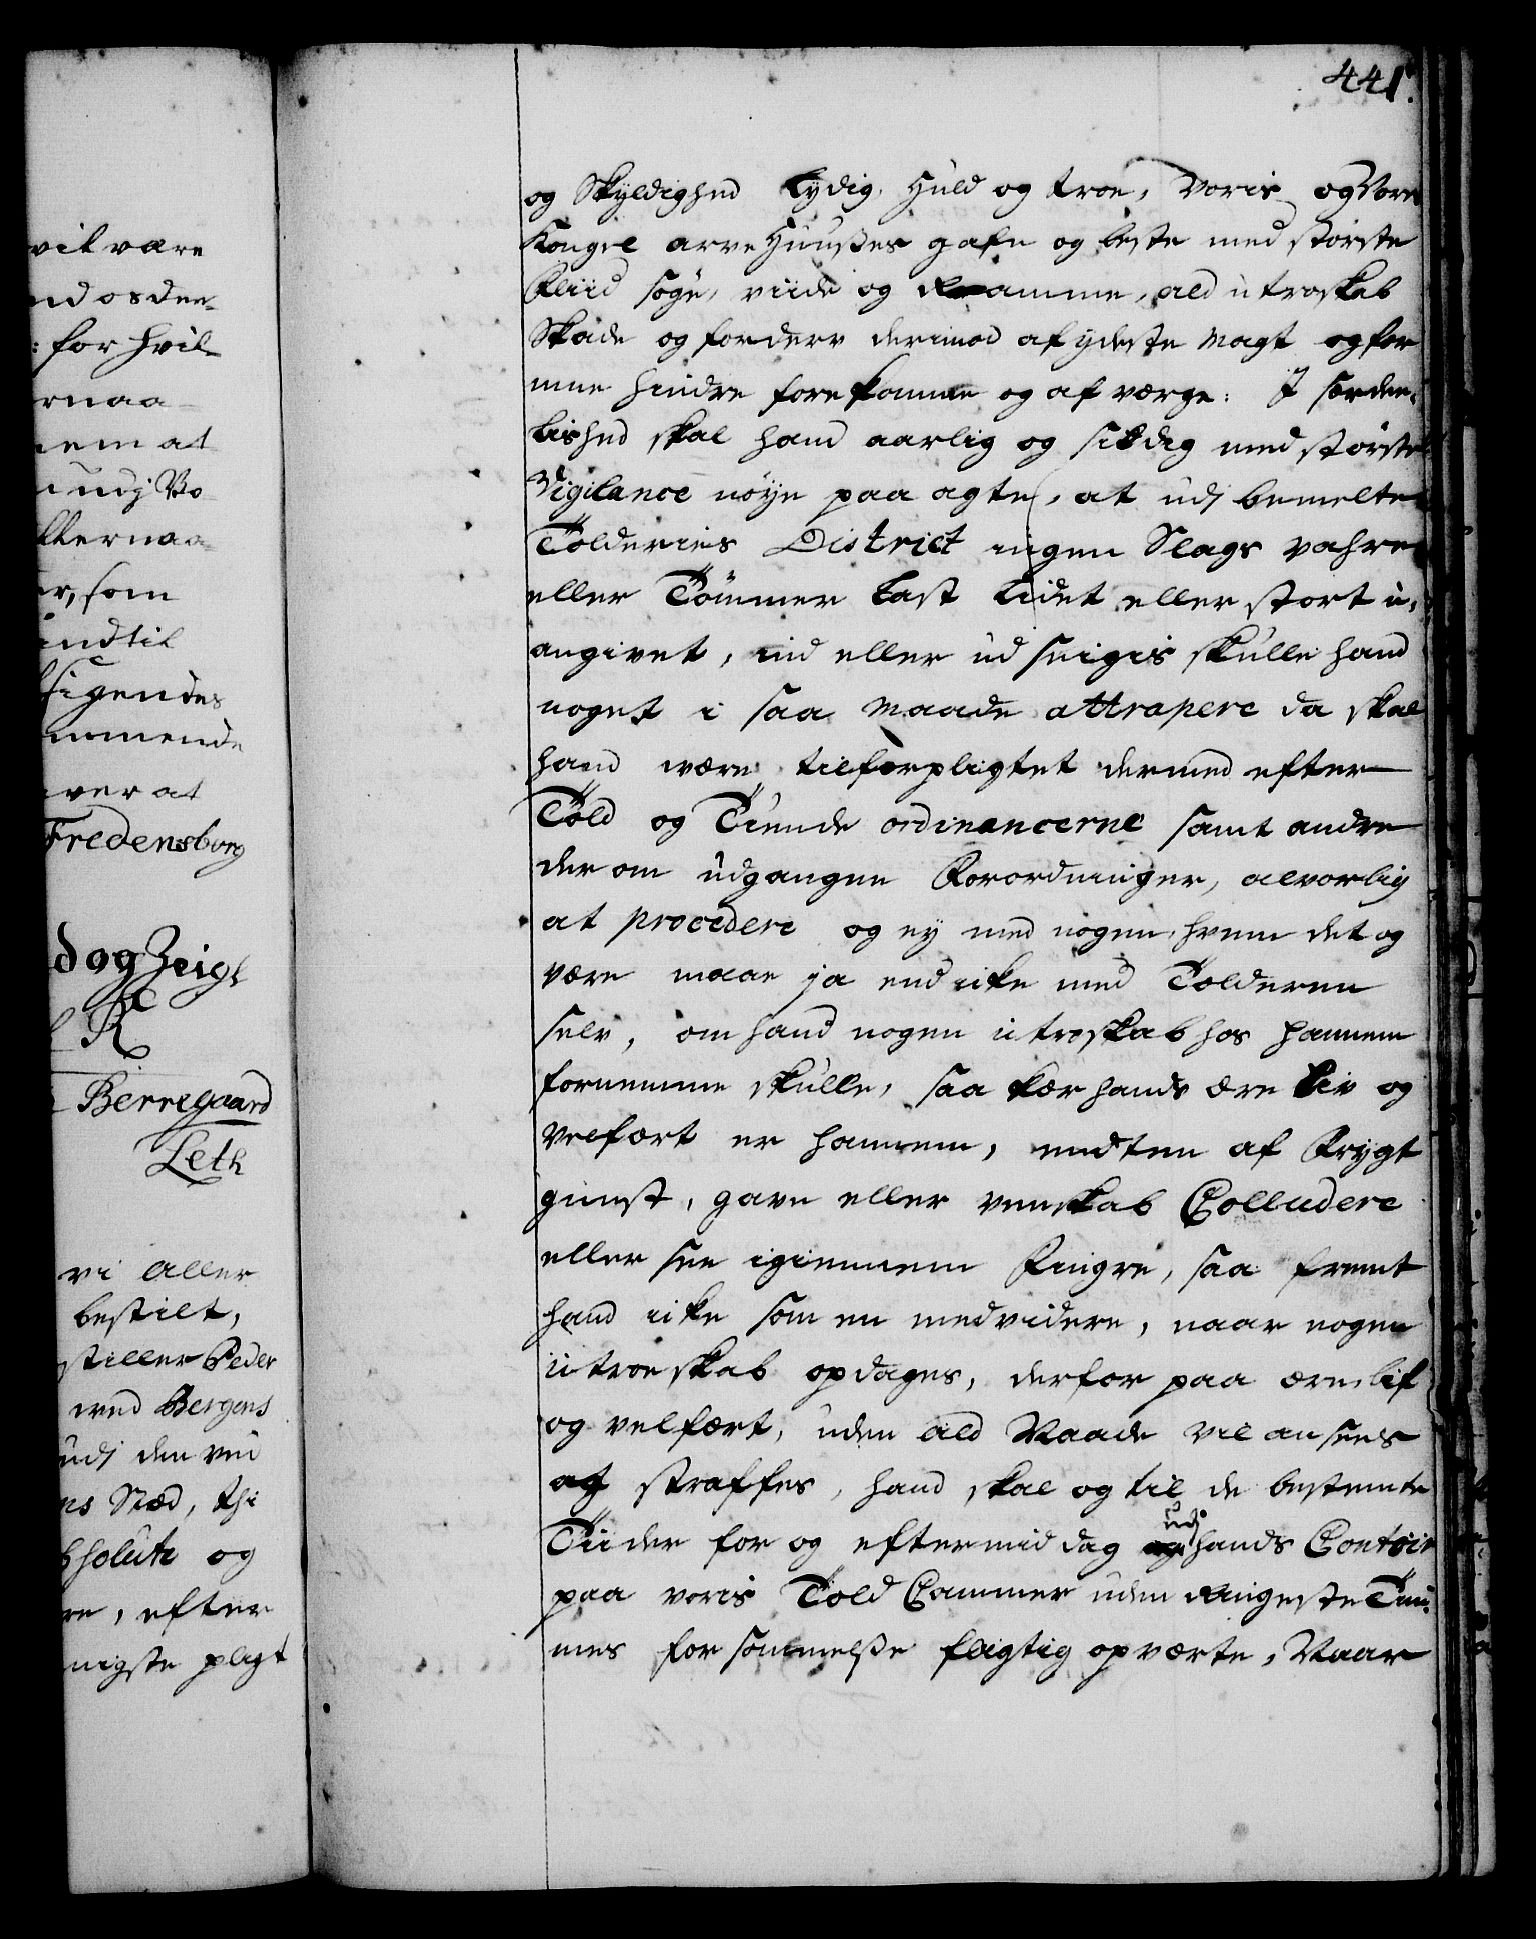 vil være
nd os den-
: for hvil
rnaa-
nem at
i udj Vo-
ekkernaa-
er, som
indtil
sigendes
ommende
over at
Fredensborg
d og Zeigl
R
Berregaard
Leth
vi aller
bestilt,
stiller Peder
wed Bergens
udj den ved
ns Stæd, thi
bsolute og
re, efter
nigste pligt
441.
og Skyldighed lydig, Huld og troe, Voris og Vores
Kongel arve Huußes gafn og beste med største
Fliid søge, viide og ramme, ald utroskab
Skade og forderv derimod af yderste Magt og for
mue hindre forekomme og af værge: J særdee,
lished skal hand aarlig og sildig med største
Vigilance nøye paa agte, at udj bemelte
Tolderies District ingen Slags vahre
eller Tømmer Last lidet eller stort u,
angivet, ind eller ud sniges skulle hand
noget i saa Maade attrapere da skal
hand være tilforpligtet dermed efter
Told og Tiende ordinancerne samt andre
der om udgangne Forordninger, alvorlig
at procedere og ey med nogen, hvem det og
være maae ja end icke med Tolderen
selv, om hand nogen utroskab hos hannem
fornemme skulle, saa kær hands ære Liv og
Velfært er hannem, endten af Frygt
gunst, gave eller venskab Colludere
eller see igiennem Fingre, saa fremt
hand icke som en medvidere, naar nogen
utroeskab opdages, derfor paa ære, lif
og velfært, uden ald Naade vil ansees
og straffes, hand skal og til de bestemte
Tiider for og eftermiddag udj hands Contoir
paa voris Told Cammer uden Ringeste Tii,
mes forsømmelße fligtig opvarte, Naar